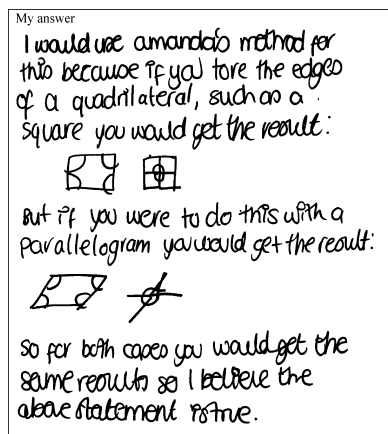 My answer
I would use amanda's method for
this because if you tore the edges
of a quadrilateral, such as a
square you would get the result:
But if you were to do this with a
parallelogram you would get the result:
So for both cases you would get the
same results so I believe the
above statement is true.